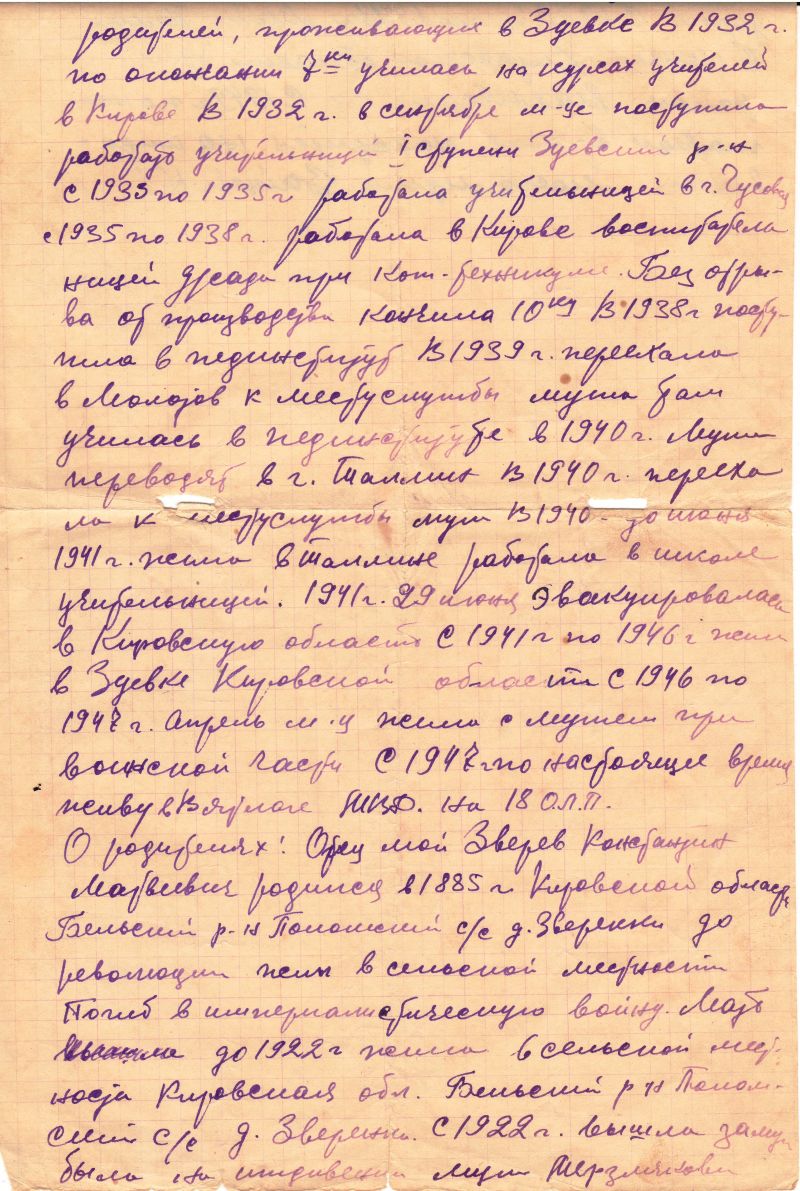 родителей, проживающих в Зуевке В 1932 г.
по окончании 7ки училась на курсах учителей
в Кирове В 1932 г. в сентябре м-це поступила
работать учительницей I ступени Зуевский р-н
С 1933 по 1935 г работала учительницей в г. Чусовой
с 1935 по 1938 г. работала в Кирове воспитатель
ницей д/сада при Кож-техникуме. Без отры-
ва от производства кончила 10ку В 1938 г посту-
пила в пединститут В 1939 г. переехала
в Молотов к местуслужбы мужа там
училась в пединституте в 1940 г. Мужа
переводят в г. Таллин В 1940 г. перееха
ла к местуслужбы мужа В 1940 до июня
1941 г. жила в Таллине работала в школе
учительницей. 1941 г. 29 июня эвакуировалась
в Кировскую область С 1941 г по 1946 г жила
в Зуевке Кировской области С 1946 по
1947 г. апрель м-ц жила с мужем при
воинской части С 1947 г по настоящее время
живу в Вятлаге МВД. на 18 О.Л.П.
О родителях: Отец мой Зверев Константин
Матвеевич родился в 1885 г. Кировской область
Бельский р-н Поломский с/с д. Зверенки до
революции жил в сельской местности
Погиб в империалистическую войну. Мать
до 1922 г жила в сельской мест-
ности Кировская обл. Бельский р-н Полом-
ский с/с д. Зверенки. С 1922 г. вышла замуж
была на иждивении мужа